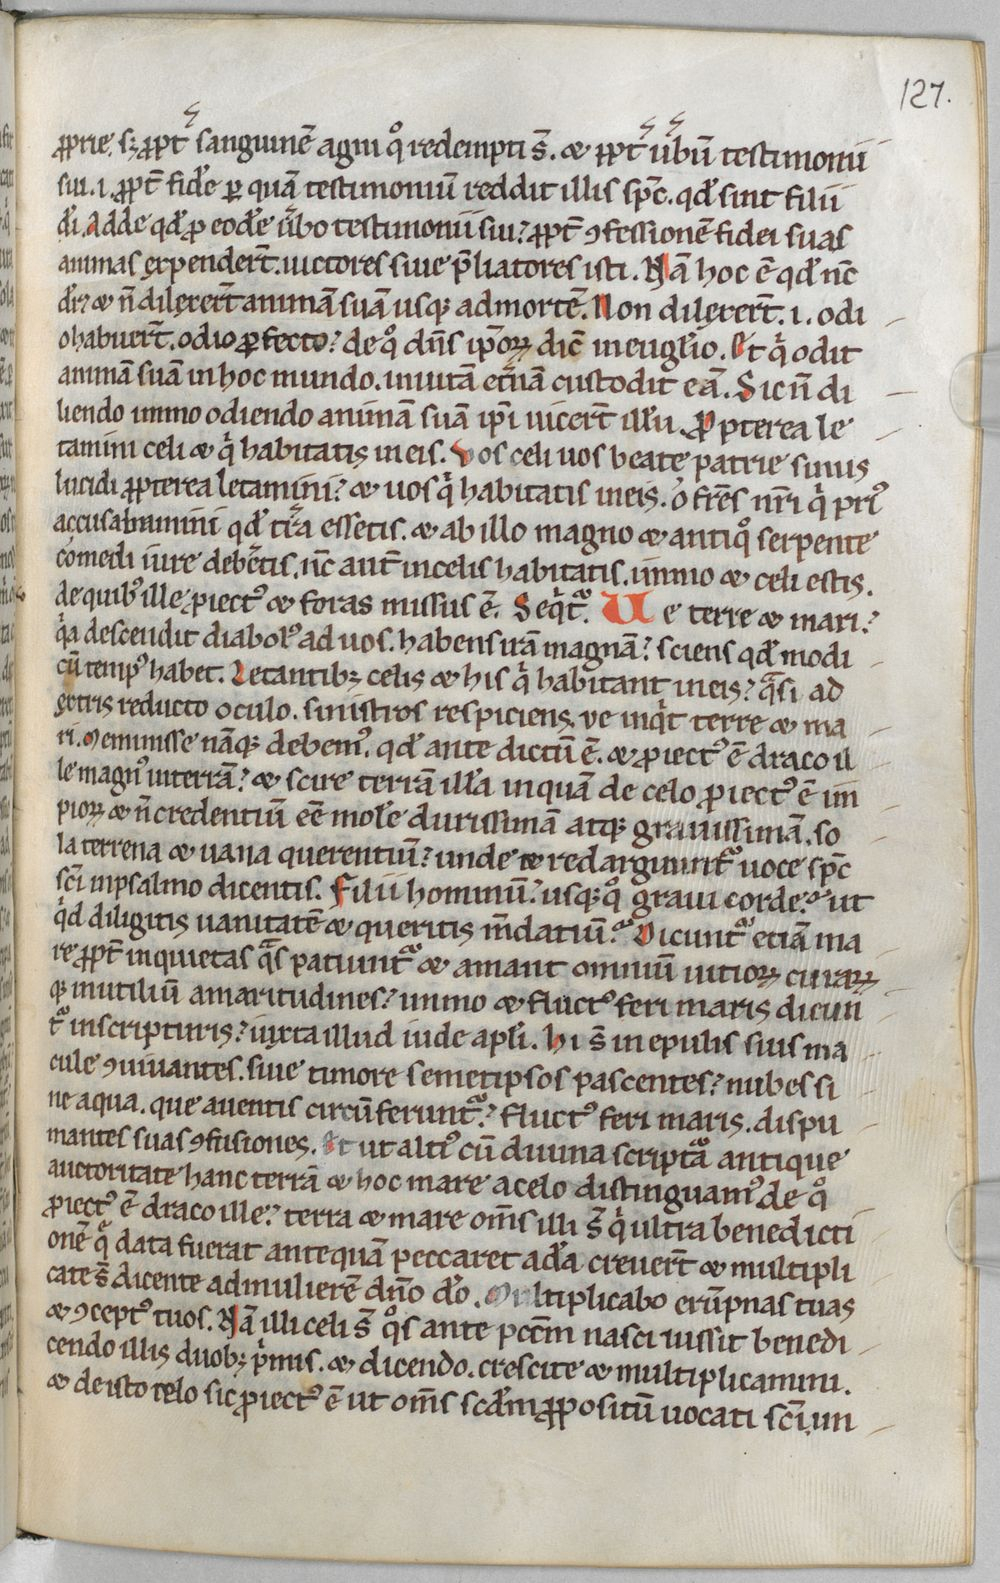 127.
ꝓprie. sꝫ ꝓpt᷑ sanguinē agni qͦ redempti s̄. ⁊ ꝓpt᷑ u᷑bū testimonii
sui .i. ꝓpt᷑ fidē ꝑ quā testimoniū reddit illis sp̄c. qđ sint filii
dī. Adde qđ ꝓ eodē u᷑bo testimonii sui? ꝓpt᷑ ꝯfessionē fidei suas
animas expendert̄. uictores siue p̄liatores isti. Nā hoc ē qđ nc̄
dr̄? ⁊ n̄ dilexert̄ animā suā usqꝫ ad mortē. Non dilexert̄ .i. odi
o habuert̄. odio ꝑfecto? de qͦ dn̄s ip̄oꝝ dic̄ in euḡlio. Et qͥ odit
animā suā in hoc mundo. in uitā et᷑nā custodit eā. Sic n̄ di
ligendo immo odiendo animā suā ip̄i uicert̄ illū. Ꝓpterea le
tamini celi ⁊ qͥ habitatis in eis. Vos celi uos beate patrie sinus
lucidi ꝓpterea letamini? ⁊ uos qͥ habitatis in eis. o fr̄es nr̄i qͥ priꝰ
accusabamini qđ tr̄a essetis. ⁊ ab illo magno ⁊ antiqͦ serpente
comedi iure deb᷑etis. nc̄ aut̄ in celis habitatis. immo ⁊ celi estis.
de quibꝰ ille ꝓiectꝰ ⁊ foras missus ē. Seqͥt᷑. Ue terre ⁊ mari?
qͣ descendit diabolꝰ ad uos. habens irā magnā? sciens qđ modi
cū tempꝰ habet. Letantibꝫ celis ⁊ his qͥ habitant in eis? qͣsi ad
extris reducto oculo. sinistros respiciens. ve inqͥt terre ⁊ ma
ri. Meminisse nāqꝫ debemꝰ. qđ ante dictū ē. ⁊ ꝓiectꝰ ē draco il
le magnꝰ in terrā? ⁊ scire terrā illā in quā de celo ꝓiectꝰ ē im
pioꝝ ⁊ n̄ credentiū eē molē durissimā atqꝫ grauissimā. so
la terrena ⁊ uana querentiū? unde ⁊ redarguunt᷑ uoce sp̄c
sc̄i in psalmo dicentis. Filii hominū? usqꝫ qͦ graui corde? ut
qͥd diligitis uanitatē ⁊ queritis m̄datiū? Dicunt᷑ etiā ma
re ꝓpt᷑ inquietas qͣs patiunt᷑ ⁊ amant omniū uitioꝝ curaꝝ
qꝫ inutiliū amaritudines? immo ⁊ fluctꝰ feri maris dicun
t᷑ in scripturis? iuxta illud iude apl̄i. hi s̄ in epulis suis ma
cule ꝯuiuantes. siue timore semetipsos pascentes? nubes si
ne aqua. que a uentis circūferunt᷑? fluctꝰ feri maris. dispu
mantes suas ꝯfusiones. Et ut altiꝰ cū diuina script᷑a antique
auctoritate hanc terrā ⁊ hoc mare a celo distinguamꝰ de qͦ
ꝓiectꝰ ē draco ille? terra ⁊ mare om̄s illi s̄ qͥ ultra benedicti
onē qͣ data fuerat antequā peccaret adā creuert̄ ⁊ multipli
cate s̄ dicente ad mulierē dn̄o dō. Multiplicabo erūpnas tuas
⁊ ꝯceptꝰ tuos. Nā illi celi s̄ qͦs ante pcc̄m nasci iussit benedi
cendo illis duobꝫ pͥmis. ⁊ dicendo. crescite ⁊ multiplicamini.
⁊ de isto celo sic ꝓiectꝰ ē ut om̄s scd̄m ꝓpositū uocati sc̄i. un